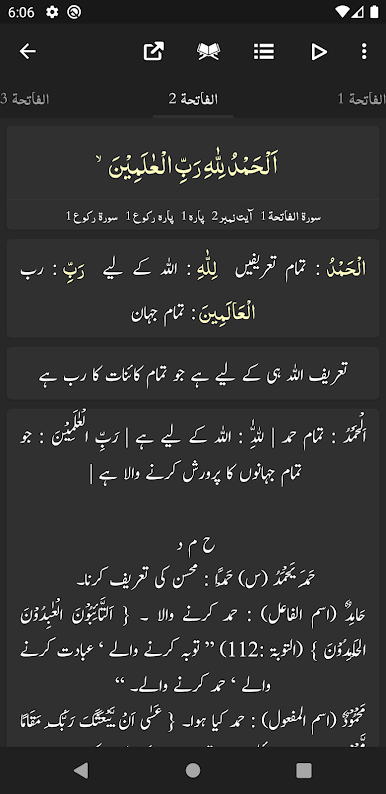 6:06
الفاتحة 1
الفاتحة 2
الفاتحة 3
اَلْحَمْدُ لِلّٰهِ رَبِّ الْعٰلَمِيْنَ ۙ
سورة الفاتحة 1 آیت نمبر 2 پارہ 1 پارہ رکوع 1 سورة رکوع 1
الْحَمْدُ : تمام تعریفیں لِلّٰهِ : اللہ کے لیے رَبِّ : رب
الْعَالَمِينَ : تمام جہان
تعریف اللہ ہی کے لیے ہے جو تمام کائنات کا رب ہے
اَلْحَمْدُ : تمام حمد | لِلّٰهِ : اللہ کے لیے ہے | رَبِّ الْعٰلَمِيْنَ : جو
تمام جہانوں کا پرورش کرنے والا ہے |
ح م د
حَمِدَ يَحْمَدُ (س) حَمْدًا : محسن کی تعریف کرنا۔
حَامِدٌ (اسم الفاعل) : حمد کرنے والا ۔ { اَلتَّآئِبُوْنَ الْعٰبِدُوْنَ
الْحٰمِدُوْنَ } (التوبۃ :112) ” توبہ کرنے والے ‘ عبادت کرنے
والے ‘ حمد کرنے والے۔ “
مَحْمُوْدٌ (اسم المفعول) : حمد کیا ہوا۔ { عَسٰٓى اَنْ يَّبْعَثَكَ رَبُّكَ مَقَامًا